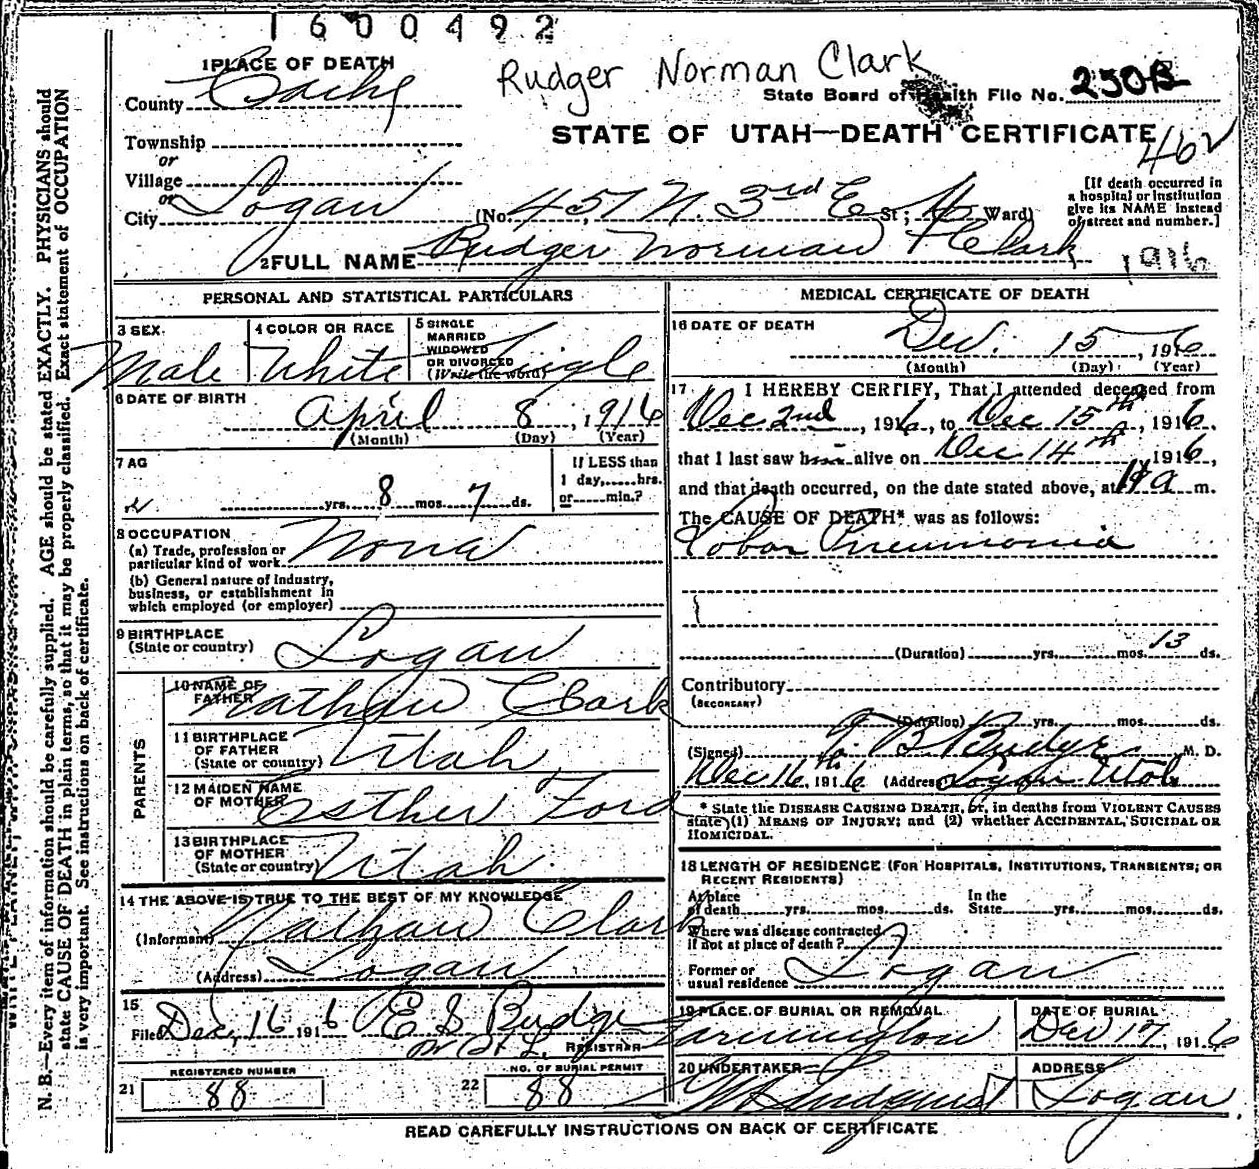 1600492
1 PLACE OF DEATH
Rudger Norman Clark
County Cache
State Board of Health File No. 230B
Township
STATE OF UTAH—DEATH CERTIFICATE
462
or
Village
or
City Logan (No. 457 N. 3rd E St; Ward)
[If death occurred in
a hospital or institution
give its NAME instead
of street and number.]
2 FULL NAME Rudger Norman Clark
1916
PERSONAL AND STATISTICAL PARTICULARS
3 SEX Male
4 COLOR OR RACE White
5 SINGLE
MARRIED
WIDOWED
OR DIVORCED
(Write the word) Single
6 DATE OF BIRTH
April 8, 1916
(Month) (Day) (Year)
7 AG
If LESS than
1 day,......hrs.
or......min.?
yrs. 8 mos. 7 ds.
8 OCCUPATION
(a) Trade, profession or
particular kind of work None
(b) General nature of industry,
business, or establishment in
which employed (or employer)
9 BIRTHPLACE
(State or country) Logan
PARENTS
10 NAME OF
FATHER Nathan Clark
11 BIRTHPLACE
OF FATHER
(State or country) Utah
12 MAIDEN NAME
OF MOTHER Esther Ford
13 BIRTHPLACE
OF MOTHER
(State or country) Utah
14 THE ABOVE IS TRUE TO THE BEST OF MY KNOWLEDGE
(Informant) Nathan Clark
(Address) Logan
15
Filed Dec, 16 1916 E S Budge
REGISTRAR
REGISTERED NUMBER
21 88
NO. OF BURIAL PERMIT
22 88
MEDICAL CERTIFICATE OF DEATH
16 DATE OF DEATH
Dec. 15, 1916
(Month) (Day) (Year)
17 I HEREBY CERTIFY, That I attended deceased from
Dec 2nd, 1916, to Dec 15th, 1916,
that I last saw him alive on Dec 14th 1916,
and that death occurred, on the date stated above, at a m.
The CAUSE OF DEATH* was as follows:
Lobar Pneumonia
(Duration) yrs. mos. 13 ds.
Contributory
(SECONDARY)
(Duration) yrs. mos. ds.
(Signed) B Budge M. D.
Dec 16th, 1916 (Address) Logan Utah
* State the DISEASE CAUSING DEATH, or, in deaths from VIOLENT CAUSES
state (1) MEANS OF INJURY; and (2) whether ACCIDENTAL, SUICIDAL OR
HOMICIDAL.
18 LENGTH OF RESIDENCE (FOR HOSPITALS, INSTITUTIONS, TRANSIENTS; OR
RECENT RESIDENTS)
At place In the
of death yrs. mos. ds. State yrs. mos. ds.
Where was disease contracted
if not at place of death?
Former or
usual residence Logan
19 PLACE OF BURIAL OR REMOVAL
Farmington
DATE OF BURIAL
Dec 17, 1916
20 UNDERTAKER
ADDRESS
Logan
READ CAREFULLY INSTRUCTIONS ON BACK OF CERTIFICATE
N. B.—Every item of information should be carefully supplied. AGE should be stated EXACTLY. PHYSICIANS should
state CAUSE OF DEATH in plain terms, so that it may be properly classified. Exact statement of OCCUPATION
is very important. See instructions on back of certificate.